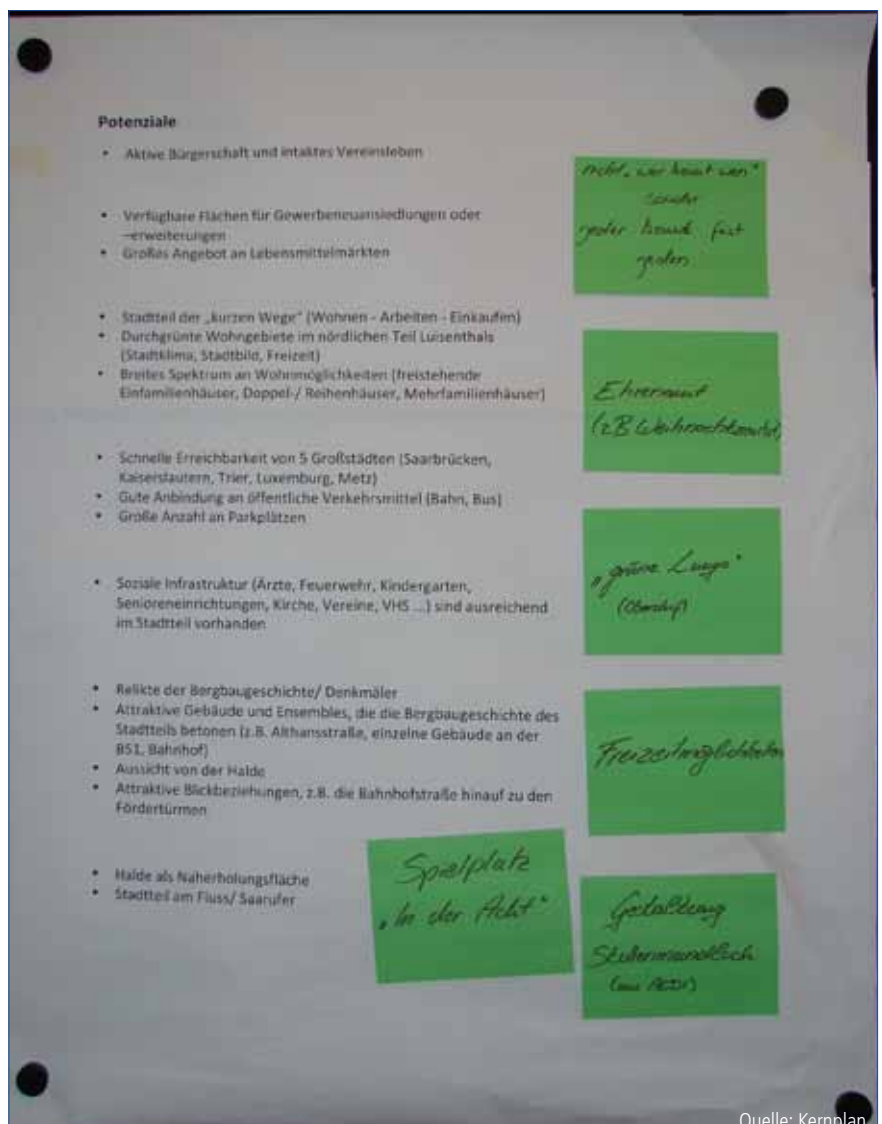 Potenziale
• Aktive Bürgerschaft und intaktes Vereinsleben
• Verfügbare Flächen für Gewerbeneuansiedlungen oder
–erweiterungen
• Großes Angebot an Lebensmittelmärkten
• Stadtteil der „kurzen Wege" (Wohnen - Arbeiten - Einkaufen)
• Durchgrünte Wohngebiete im nördlichen Teil Luisenthals
(Stadtklima, Stadtbild, Freizeit)
• Breites Spektrum an Wohnmöglichkeiten (freistehende
Einfamilienhäuser, Doppel-/ Reihenhäuser, Mehrfamilienhäuser)
• Schnelle Erreichbarkeit von 5 Großstädten (Saarbrücken,
Kaiserslautern, Trier, Luxemburg, Metz)
• Gute Anbindung an öffentliche Verkehrsmittel (Bahn, Bus)
• Große Anzahl an Parkplätzen
• Soziale Infrastruktur (Ärzte, Feuerwehr, Kindergarten,
Senioreneinrichtungen, Kirche, Vereine, VHS ...) sind ausreichend
im Stadtteil vorhanden
• Relikte der Bergbaugeschichte/ Denkmäler
• Attraktive Gebäude und Ensembles, die die Bergbaugeschichte des
Stadtteils betonen (z.B. Althansstraße, einzelne Gebäude an der
B51, Bahnhof)
• Aussicht von der Halde
• Attraktive Blickbeziehungen, z.B. die Bahnhofstraße hinauf zu den
Fördertürmen
• Halde als Naherholungsfläche
• Stadtteil am Fluss/ Saarufer
nicht „wer kennt wen"
sondern
jeder kennt fast
jeden
Ehrenamt
(z B Weihnachtsmarkt)
„grüne Lunge"
Freizeitmöglichkeiten
Spielplatz
„In der Acht"
Gestaltung
Quelle: Kernplan